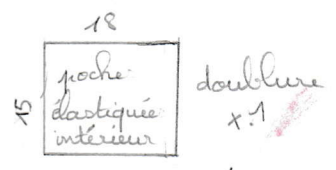 18
15
poche
élastiquée
intérieur
doublure
x.1